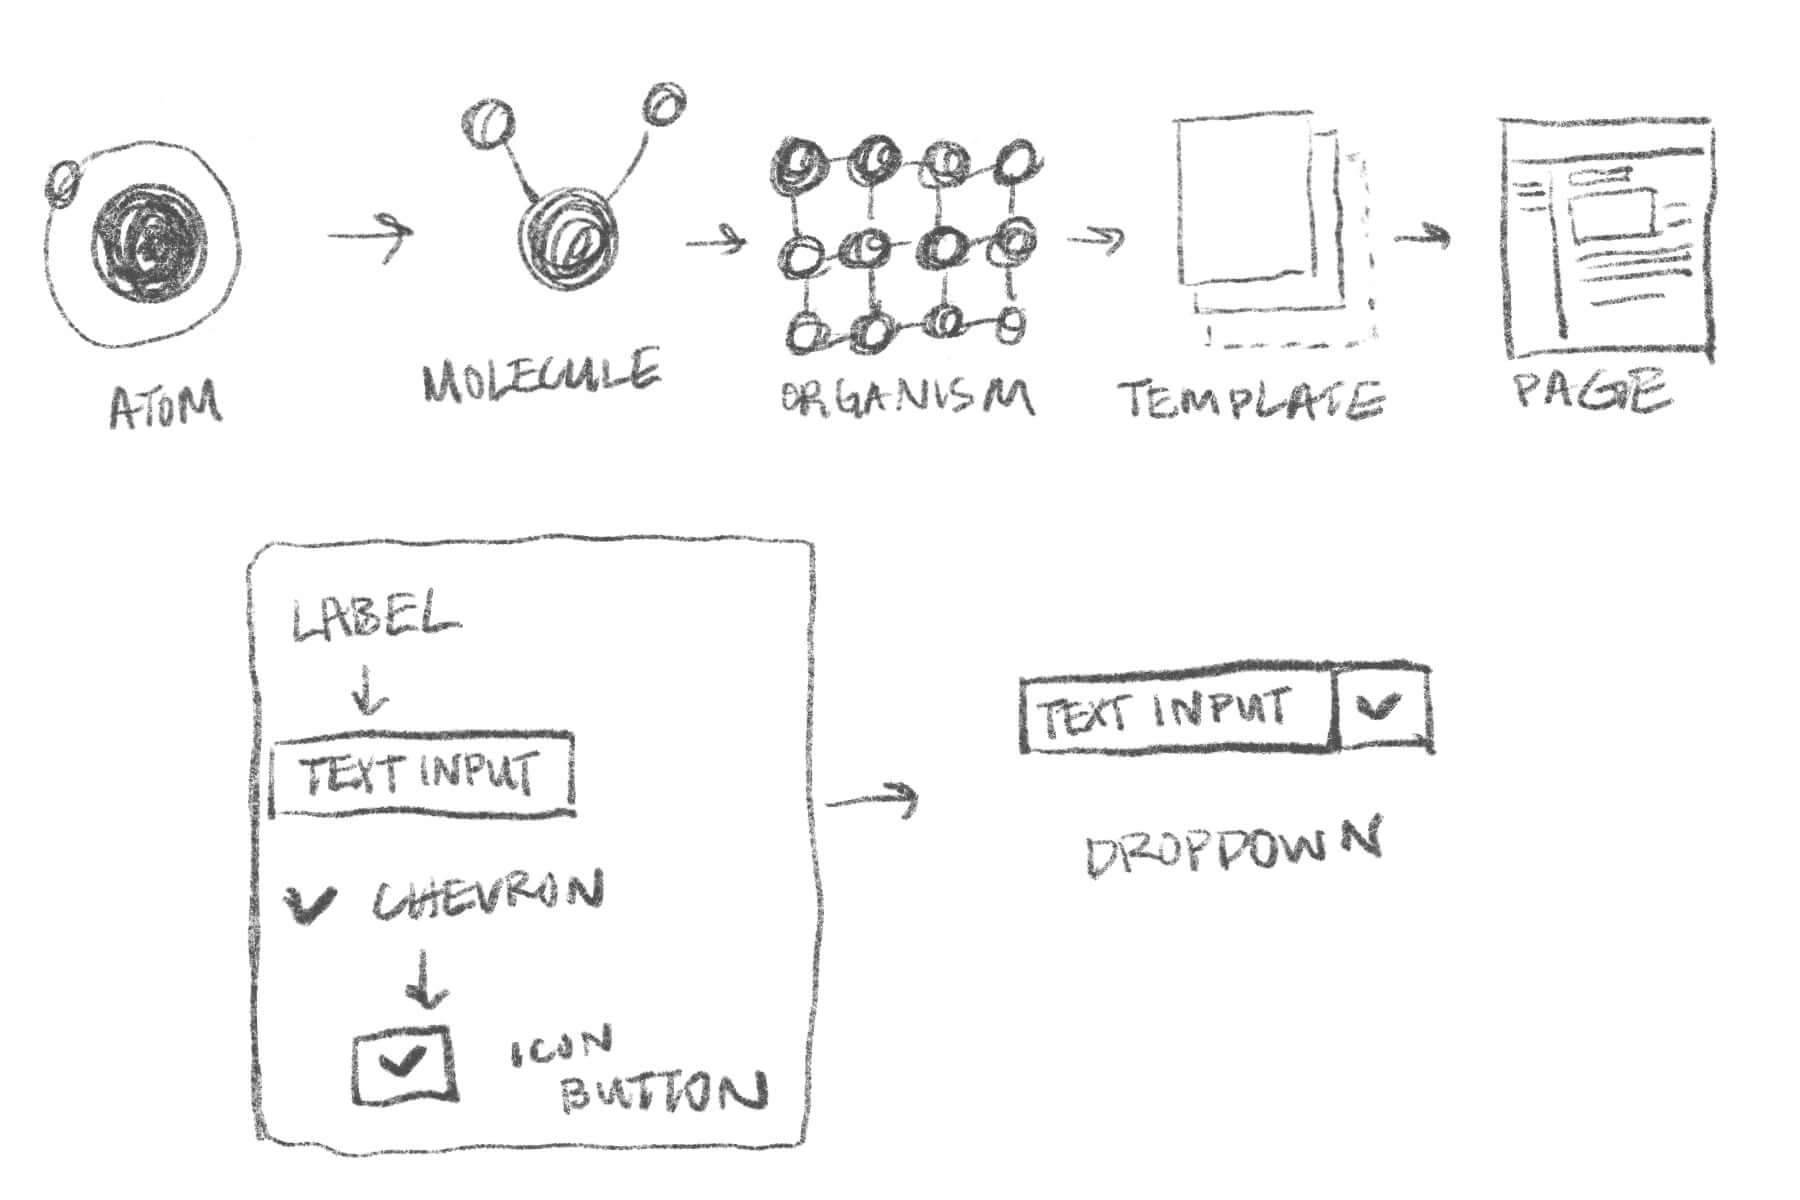 ATOM
MOLECULE
ORGANISM
TEMPLATE
PAGE
LABEL
TEXT INPUT
CHEVRON
ICON
BUTTON
TEXT INPUT
DROPDOWN